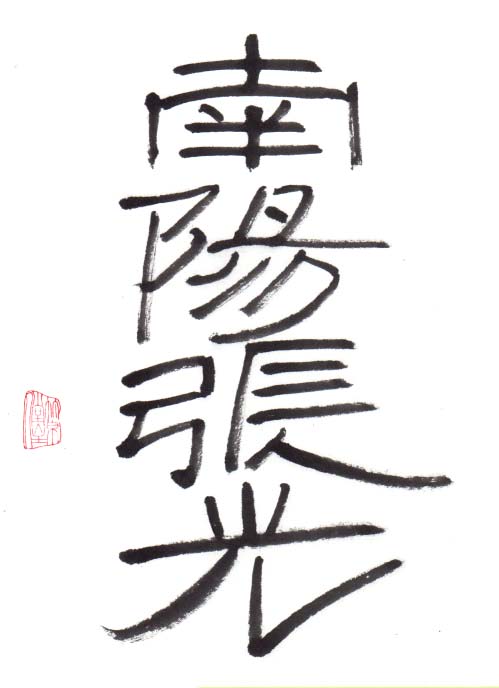 南陽張光